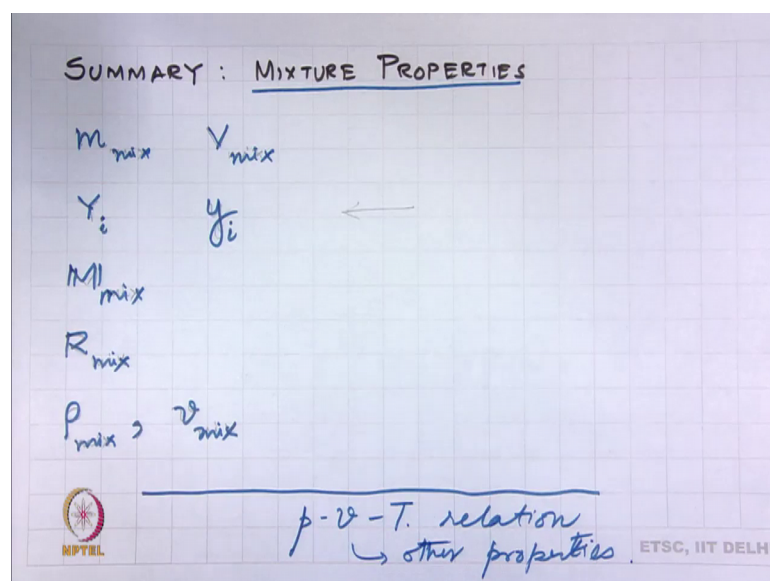 SUMMARY : MIXTURE PROPERTIES
m_mix V_mix
Y_i y_i
M_mix
R_mix
ρ_mix , v_mix
p-v-T. relation
↳ other properties.
NPTEL
ETSC, IIT DELH